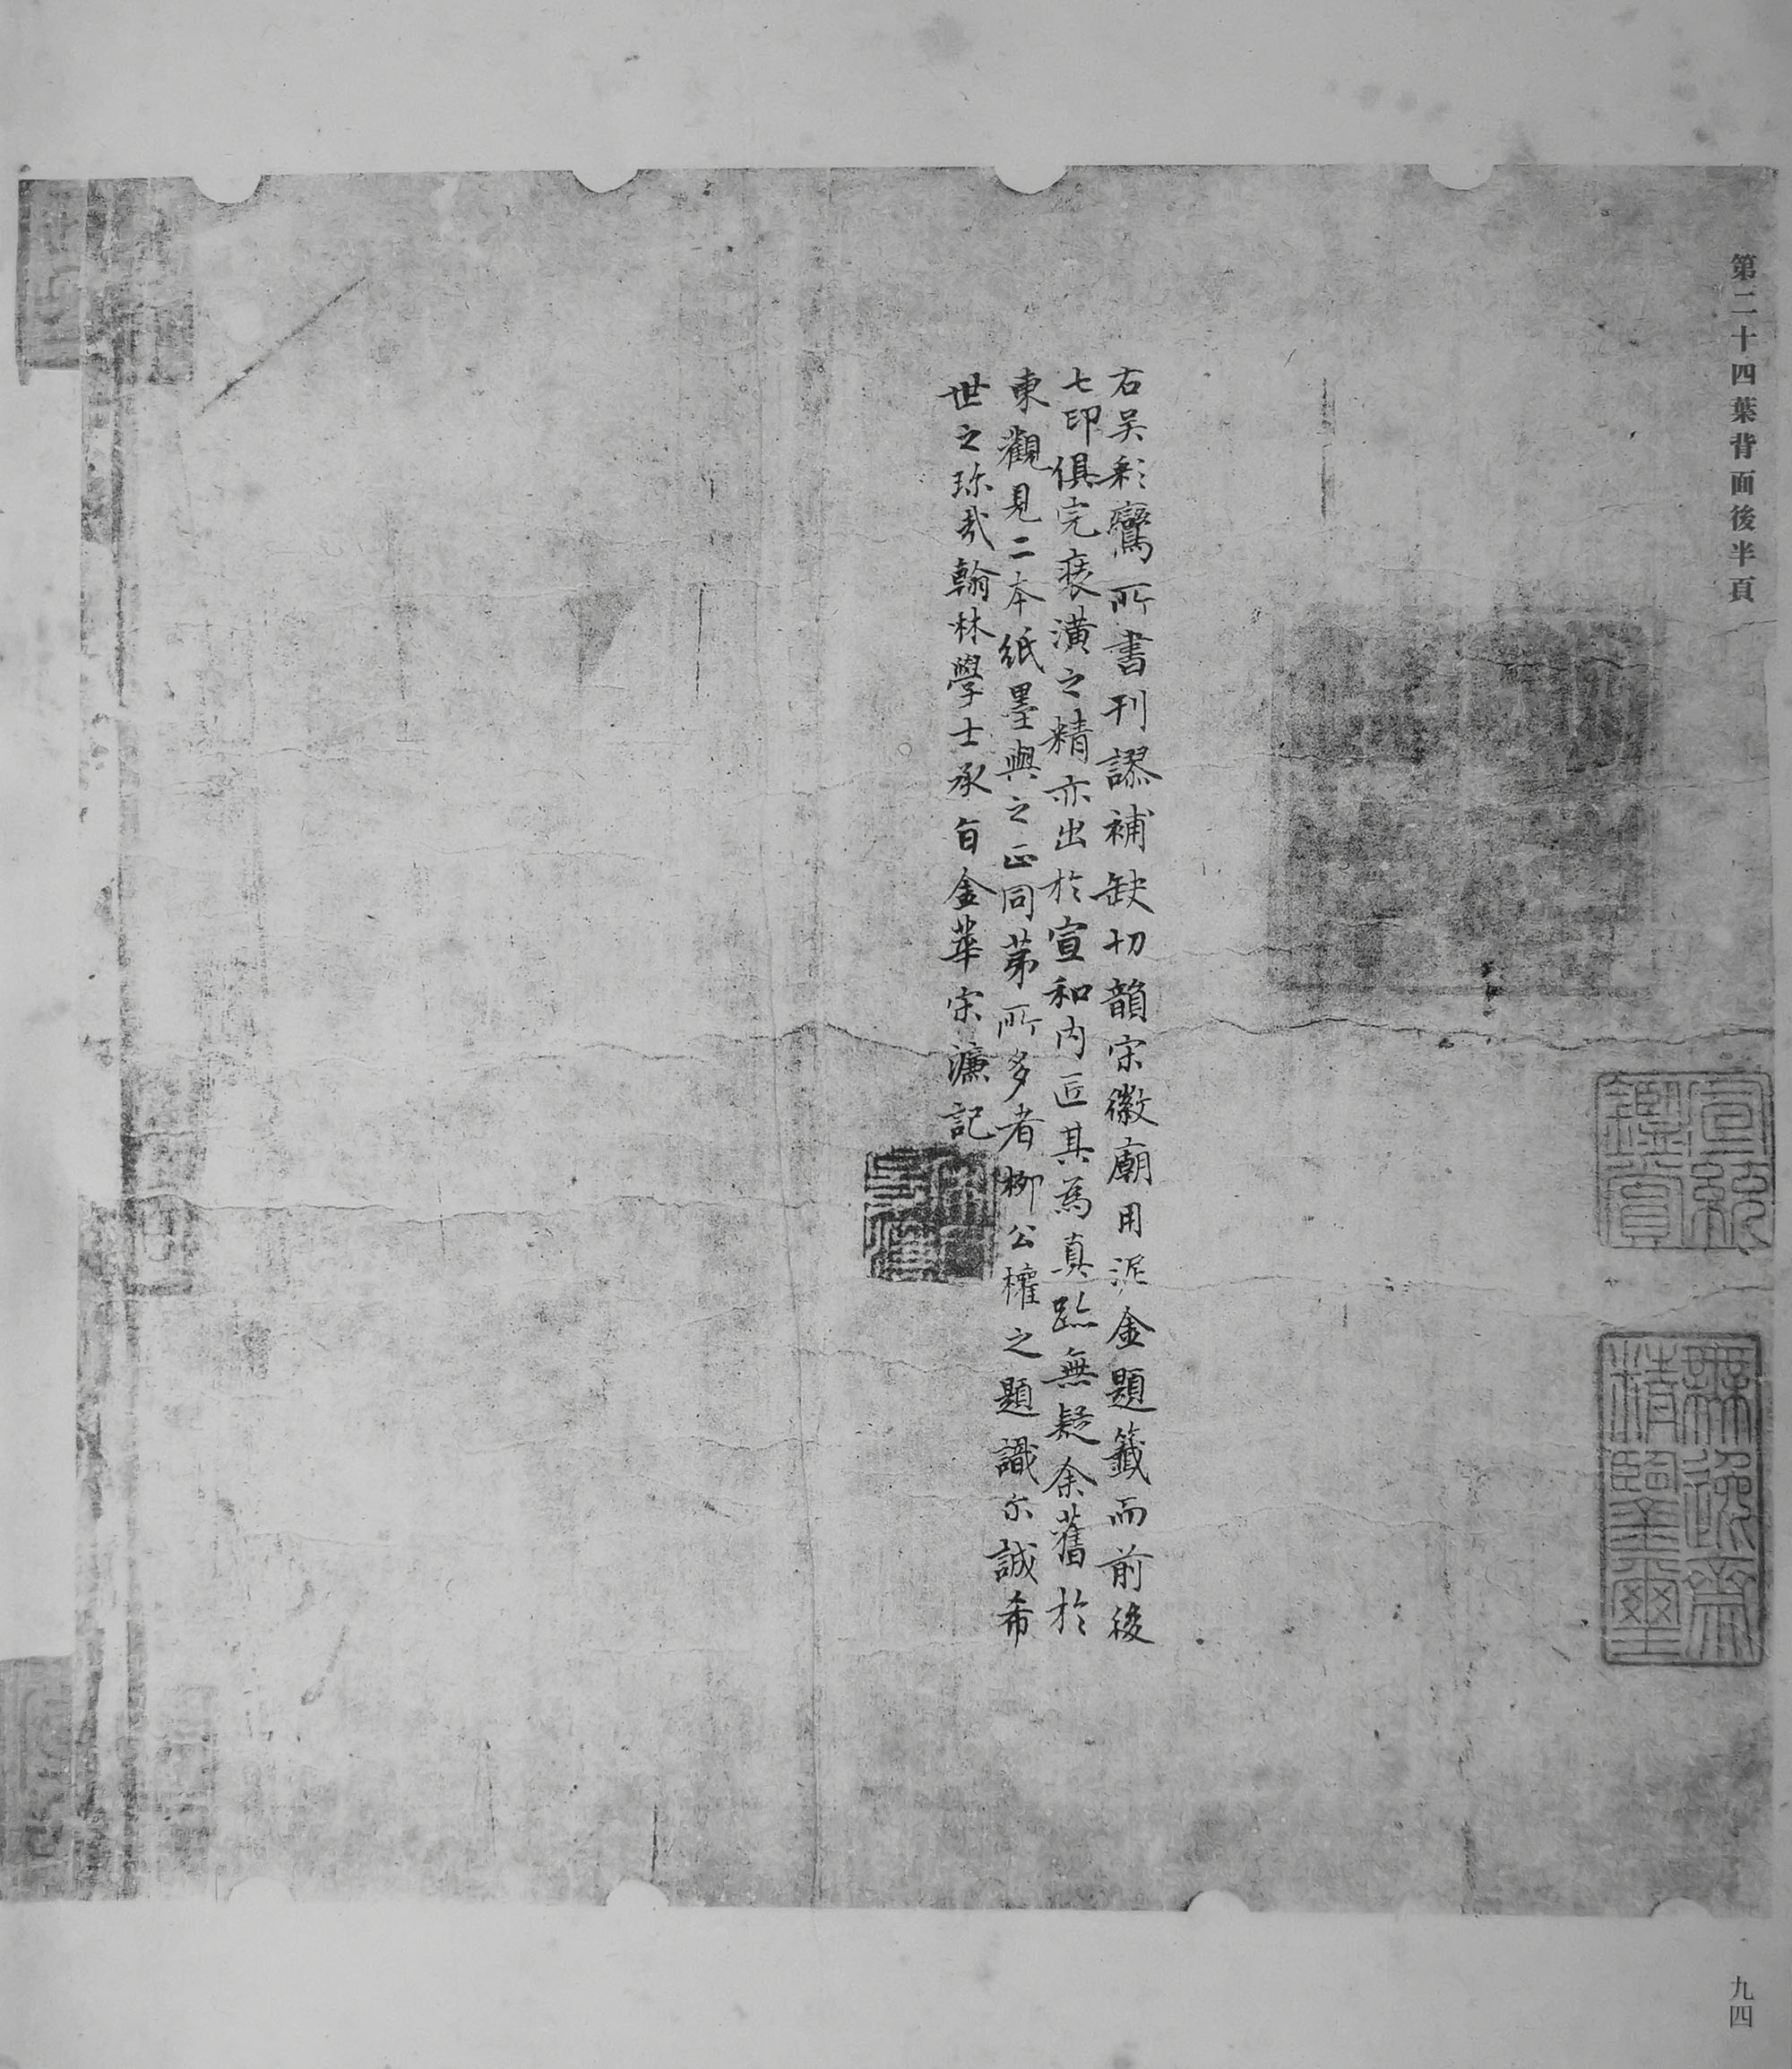 第二十四葉背面後半頁
右吴彩鸞所書刊謬補缺切韻宋徽廟用泥金題籤而前後
七印俱完裱潢之精亦出於宣和内匠其為真跡無疑余舊於
東觀見二本紙墨與之正同苐所多者栁公權之題識尔誠希
世之珎㢤翰林學士承旨金華宋濂記
宣統鑑賞
無逸齋精鑒璽
九四